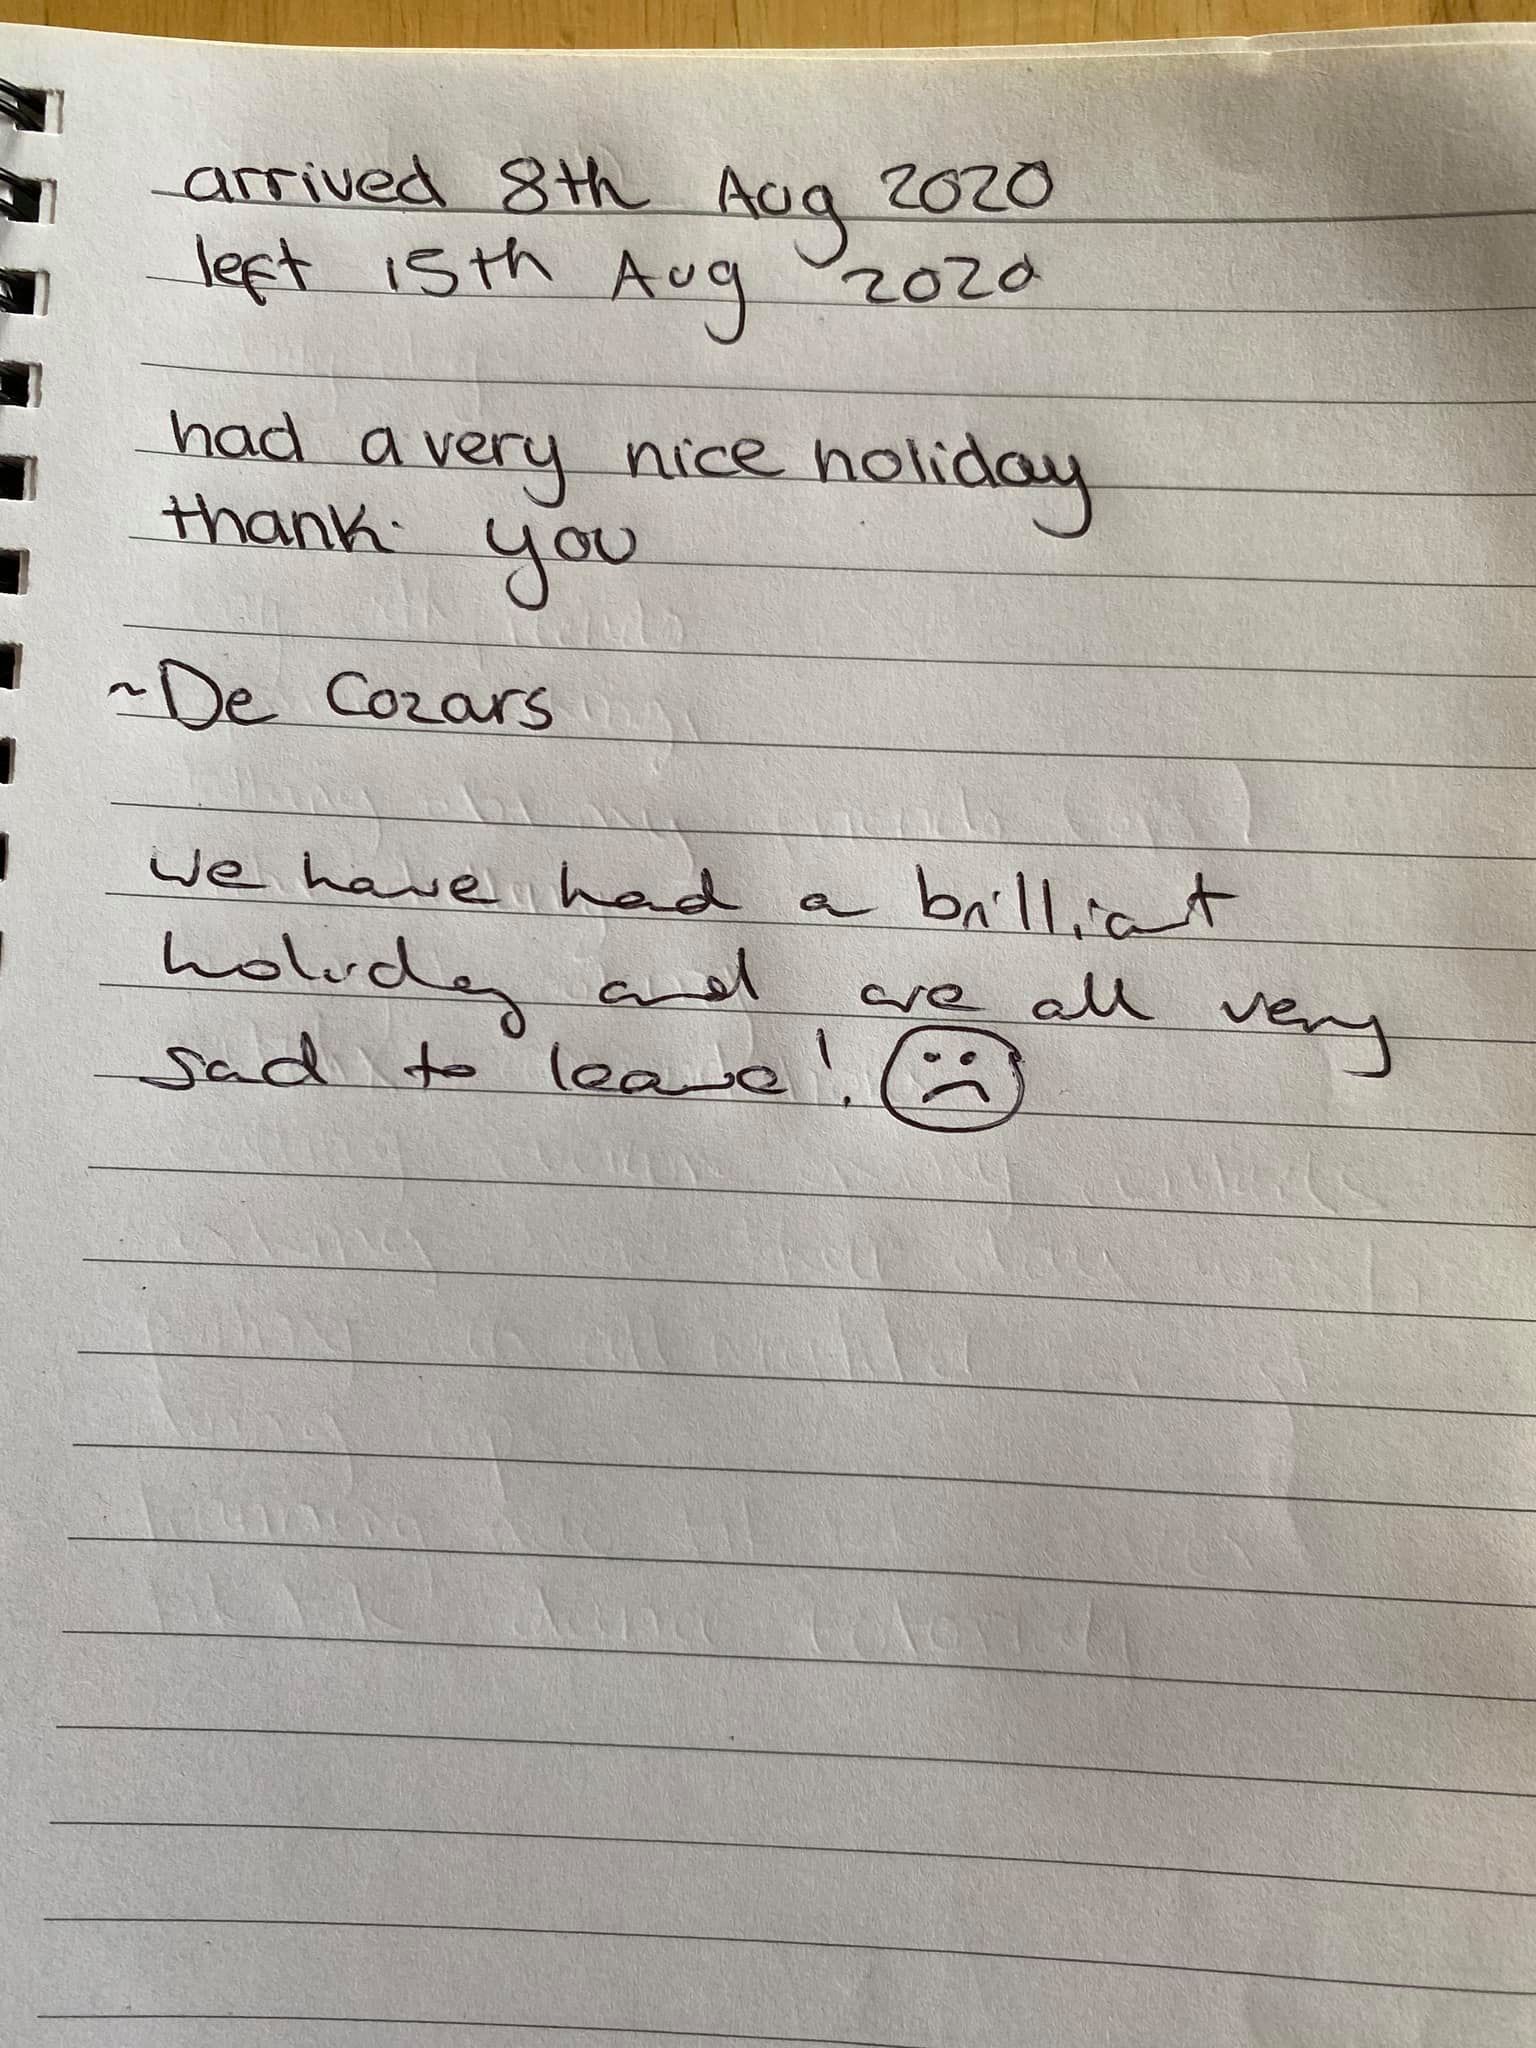 arrived 8th Aug 2020
left 15th Aug 2020
had a very nice holiday
thank you
~De Cozars
we have had a brilliant
holiday and are all very
sad to leave!